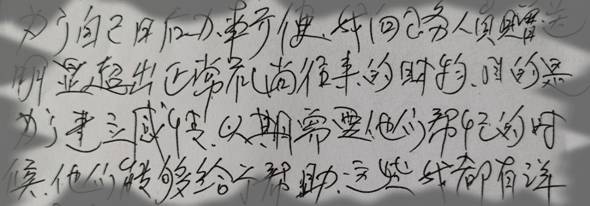 为了自己日后办事方便,我向公务人员赠送
明显超出正常礼尚往来的财物,目的是
为了建立感情,以期需要他们帮忙的时
候,他们能够给予帮助,这些我都有详